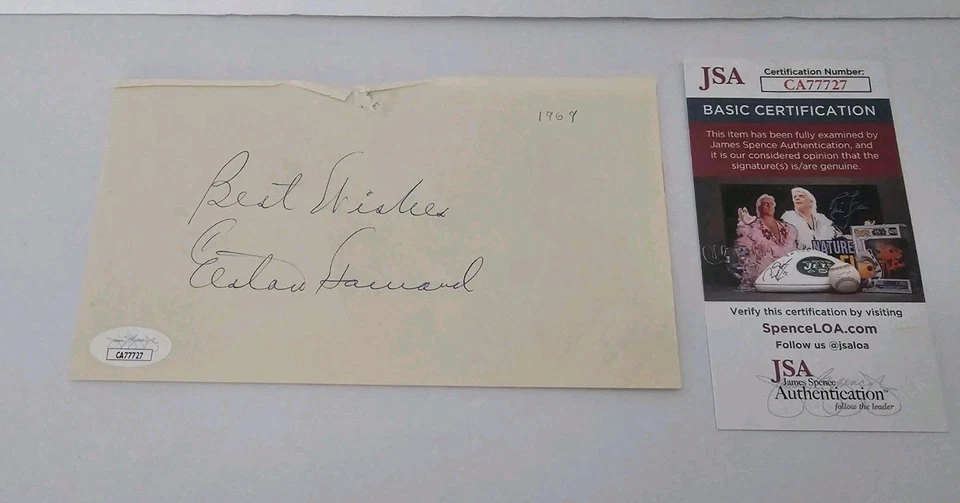 1969
Best Wishes
Elston Howard
CA77727
JSA
Certification Number:
CA77727
BASIC CERTIFICATION
This item has been fully examined by
James Spence Authentication, and
it is our considered opinion that the
signature(s) is/are genuine.
NATURE
JETS
Verify this certification by visiting
SpenceLOA.com
Follow us @jsaloa
JSA
James Spence
Authentication™
follow the leader